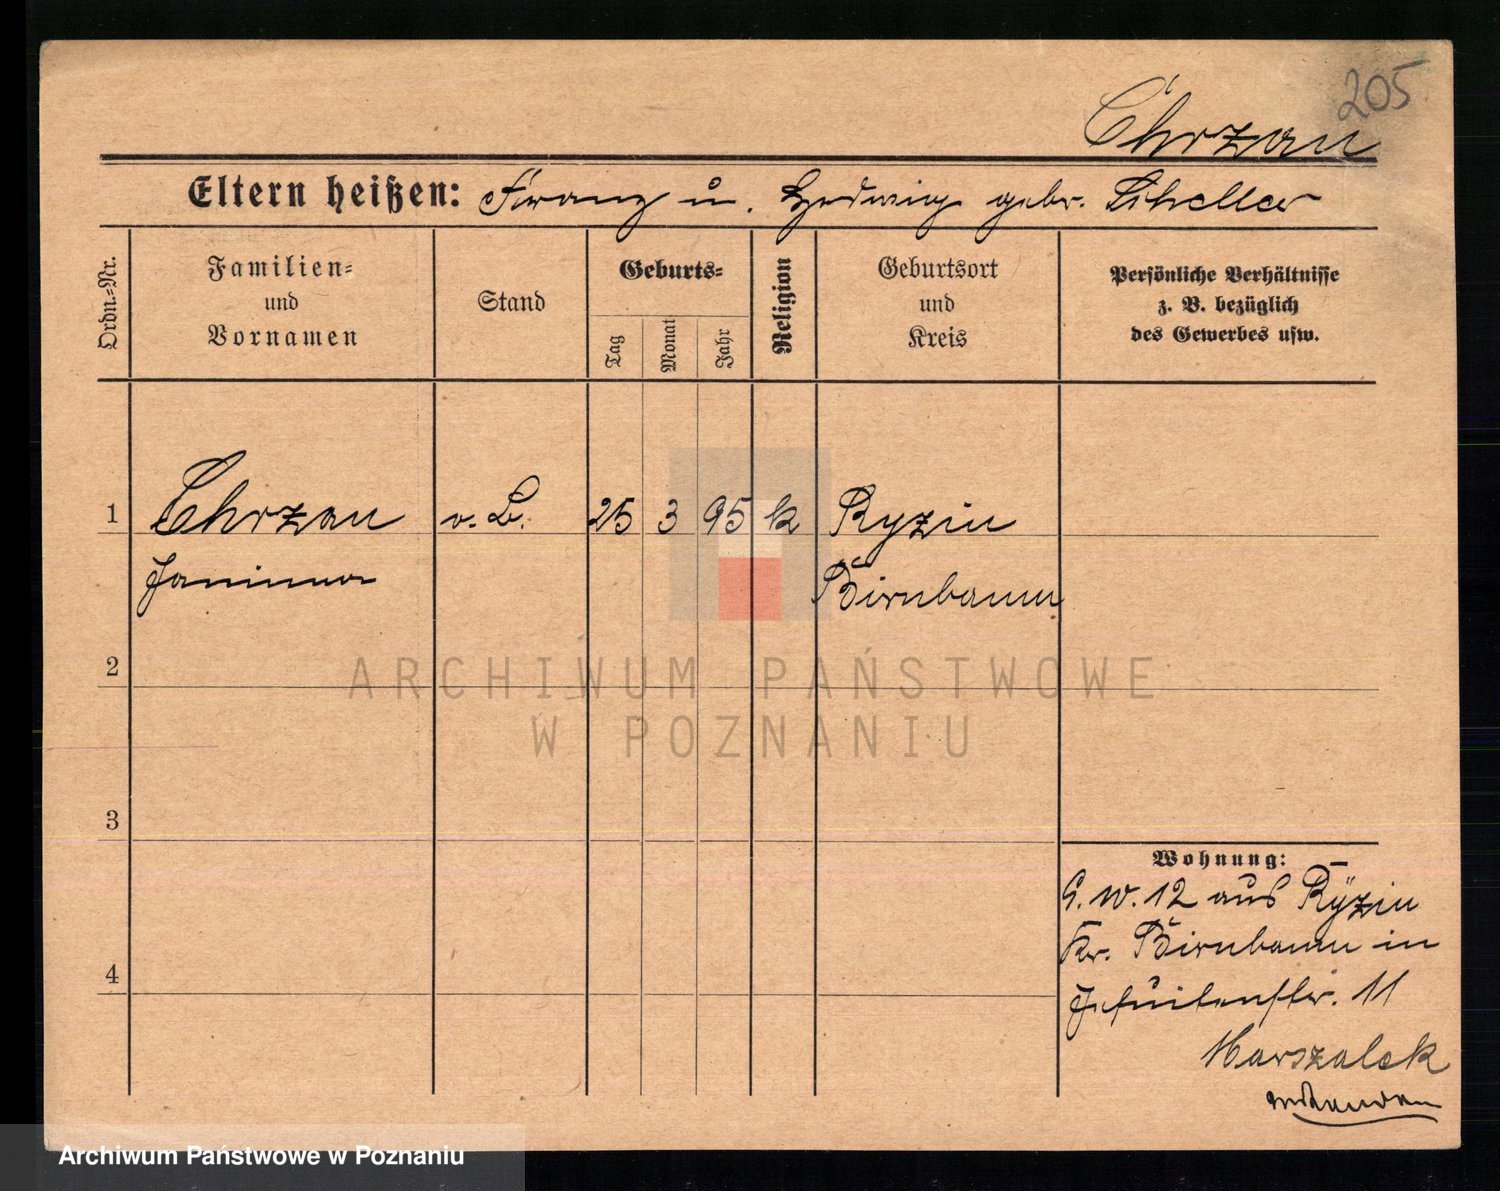 205
Chrzan
Eltern heißen: Franz u. Hedwig gebr. Scheller
Ordn.-Nr.
Familien-
und
Vornamen
Stand
Geburts-
Tag
Monat
Jahr
Religion
Geburtsort
und
Kreis
Persönliche Verhältnisse
z. B. bezüglich
des Gewerbes usw.
1 Chrzan o. B. 25 3 95 k Ryzin
Janinna Birnbaum
2
ARCHIWUM PAŃSTWOWE
W POZNANIU
3
Wohnung:
9. 10. 12 aus Ryzin
Kr. Birnbaum in
4
Jesuitenstr. 11
Marszalek
Archiwum Państwowe w Poznaniu